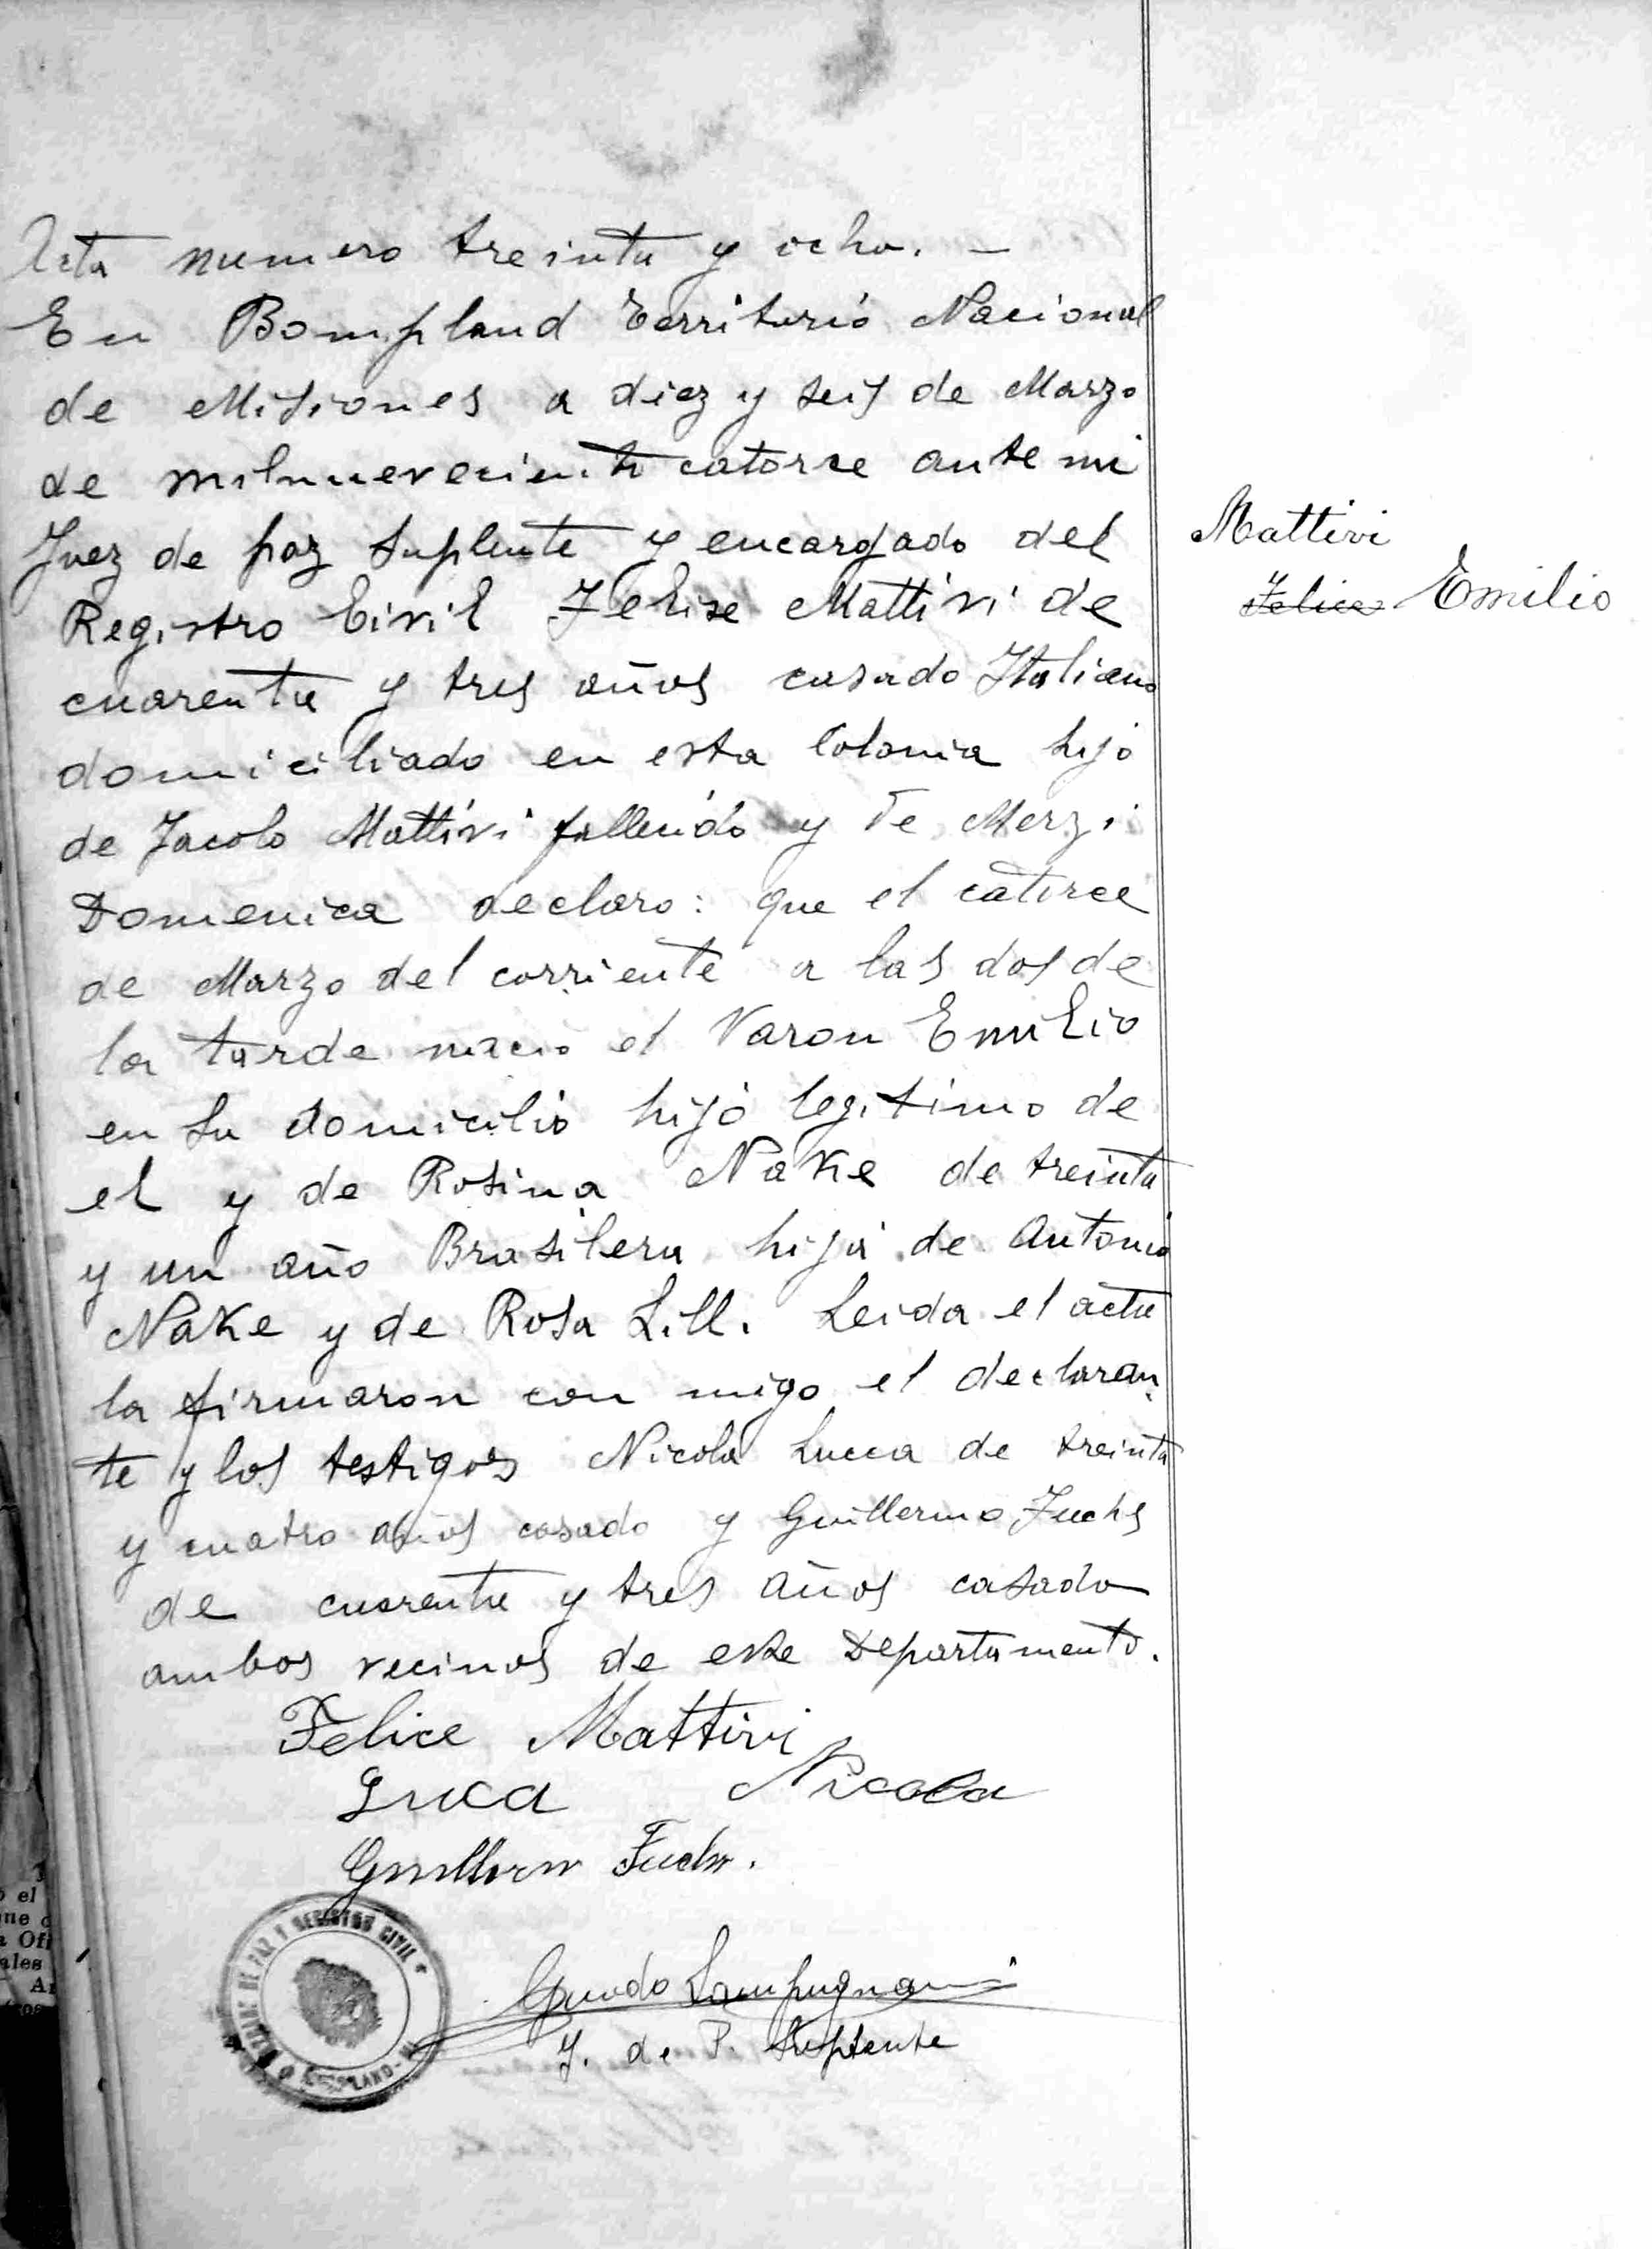 Acta numero treinta y ocho. —
En Bompland Territorio Nacional
de Misiones a diez y seis de Marzo
de milnueveciento catorse ante mi
Juez de paz Suplente y encargado del
Registro Civil Felise Mattivi de
cuarenta y tres años casado Italiano
domiciliado en esta Colonia hijo
de Jacobo Mattivi fallecido y de Merzi
Domenica declaro: que el catorce
de Marzo del corriente a las dos de
la tarde nacio el Varon Emilio
en su domicilio hijo legitimo de
el y de Rosina Nake de treinta
y un año Brasilera hija de Antonio
Nake y de Rosa Lill. Leida el acta
la firmaron con migo el declaran-
te y los testigos Nicola Lucca de treinta
y cuatro años casado y Guillermo Fuchs
de cuarenta y tres años casado
ambos vecinos de este Departamento.
Felice Mattivi
Luca Nicola
Guillermo Fuchs.
Guido Lampugnani
J. de P. Suplente
Mattivi
Felice Emilio
DE PAZ Y REGISTRO CIVIL